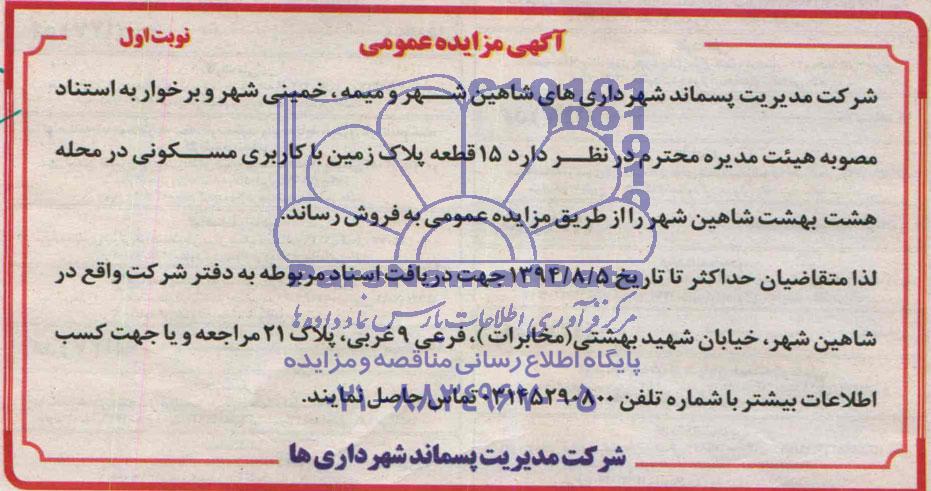 آگهی مزایده عمومی
نوبت اول
شرکت مدیریت پسماند شهرداری های شاهین شهر و میمه ، خمینی شهر و برخوار به استناد
مصوبه هیئت مدیره محترم در نظر دارد ۱۵ قطعه پلاک زمین با کاربری مسکونی در محله
هشت بهشت شاهین شهر را از طریق مزایده عمومی به فروش رساند.
لذا متقاضیان حداکثر تا تاریخ ۱۳۹۴/۸/۵ جهت دریافت اسناد مربوطه به دفتر شرکت واقع در
ParsNamadData
مرکز فرآوری اطلاعات پارس نماد داده ها
شاهین شهر، خیابان شهید بهشتی(مخابرات)، فرعی ۹ غربی، پلاک ۲۱ مراجعه و یا جهت کسب
پایگاه اطلاع رسانی مناقصه و مزایده
اطلاعات بیشتر با شماره تلفن ۰۳۱۴۵۲۹۰۸۰۰ تماس حاصل نمایند.
۰۲۱-۸۸۳۴۹۶۷۰-۵
شرکت مدیریت پسماند شهرداری ها